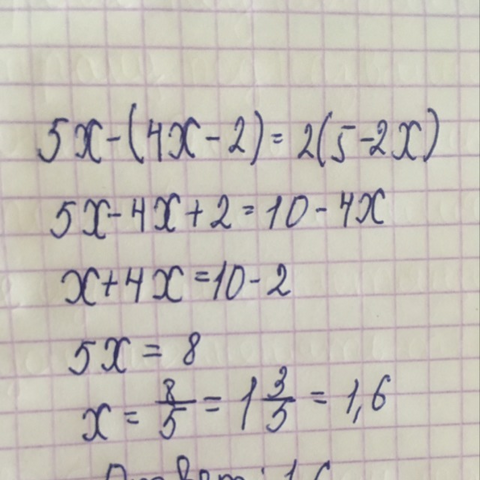 5x-(4x-2)=2(5-2x)
5x-4x+2=10-4x
x+4x=10-2
5x=8
x=8/5=1 3/5=1,6